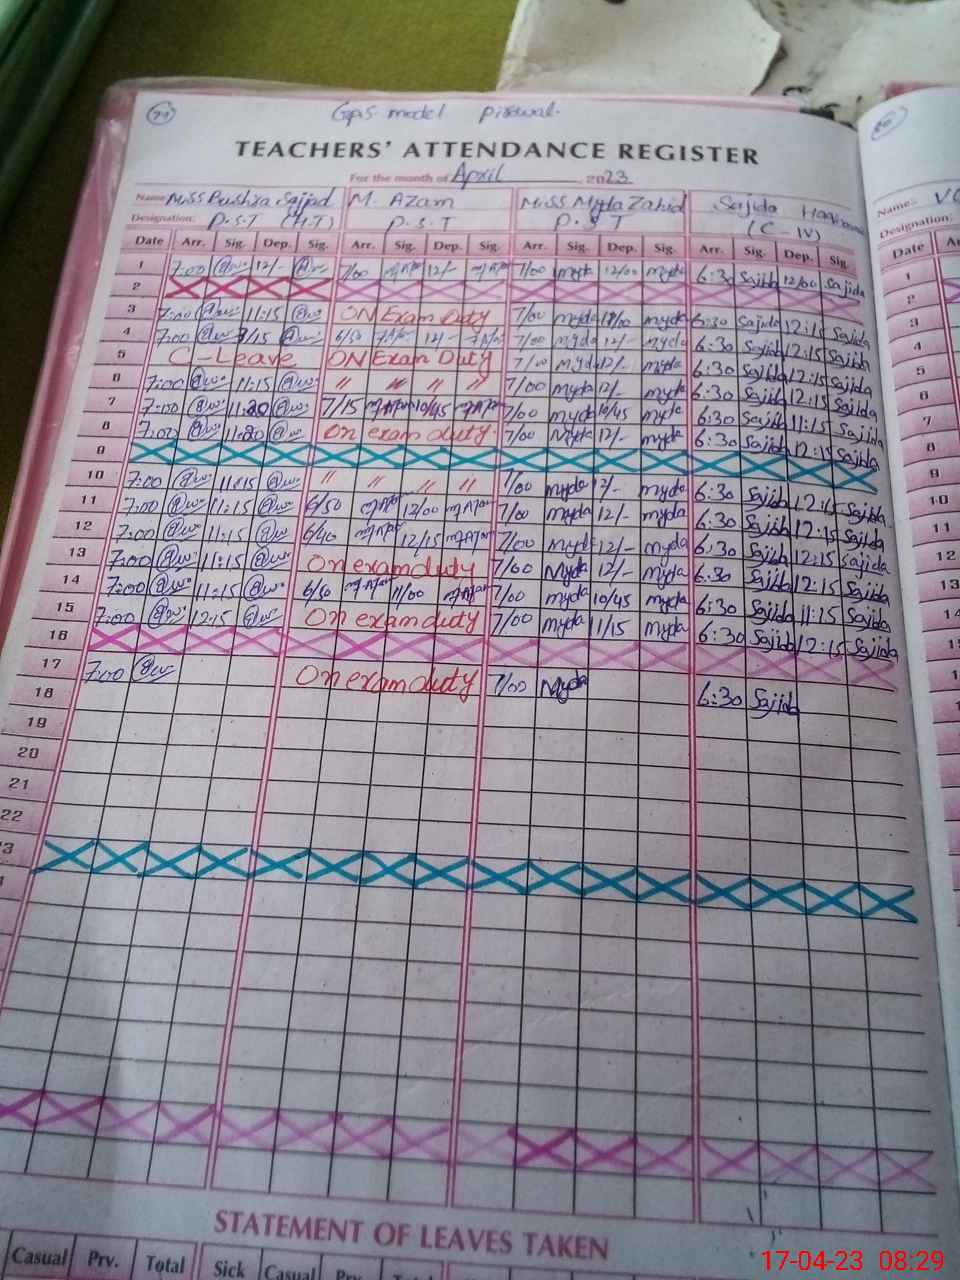 79
GPS model
TEACHERS' ATTENDANCE REGISTER
For the month of April 2023
Name Miss Bushra Sajjad M. Azam Miss Myda Zahid Sajida
Designation: P.S.T (H.T) P.S.T P.S.T (C-IV)
Date Arr. Sig. Dep. Sig. Arr. Sig. Dep. Sig. Arr. Sig. Dep. Sig. Arr. Sig. Dep. Sig.
1 7:00 12/- 7/00 12/- 7/00 myda 12/00 myda 6:30 Sajida 12/00 Sajida
2
3 7:00 11:15 ON Exam Duty 7/00 myda myda 6:30 Sajida 12:15 Sajida
4 7:00 6/50 12/- 7/00 myda 12/- myda 6:30 Sajida 12:15 Sajida
5 C-Leave ON Exam Duty 7/00 myda 12/- myda 6:30 Sajida 12:15 Sajida
6 7:00 11:15 // // // // 7/00 myda 12/- myda 6:30 Sajida 12:15 Sajida
7 7:00 11:20 7/15 10/45 7/00 myda 10/45 myda 6:30 Sajida 11:15 Sajida
8 7:00 11:20 On exam duty. 7/00 Myda 12/- myda 6:30 Sajida 12:15 Sajida
9
10 7:00 11:15 // // // // 7/00 myda 12/- myda 6:30 Sajida 12:15 Sajida
11 7:00 11:15 6/50 12/00 7/00 myda 12/- myda 6:30 Sajida 12:15 Sajida
12 7:00 11:15 6/40 12/15 7/00 myda 12/- myda 6:30 Sajida 12:15 Sajida
13 7:00 11:15 On exam duty 7/00 Myda 12/- myda 6:30 Sajida 12:15 Sajida
14 7:00 11:15 6/50 11/00 7/00 myda 10/45 myda 6:30 Sajida 11:15 Sajida
15 7:00 12:15 On exam duty 7/00 myda 11/15 myda 6:30 Sajida 12:15 Sajida
16
17 7:00 On exam duty 7/00 Myda 6:30 Sajida
18
19
20
21
22
3
STATEMENT OF LEAVES TAKEN
Casual Prv. Total Sick Casual
Name:
Designation:
Date
1
2
3
4
5
6
7
8
9
10
11
12
13
17-04-23 08:29